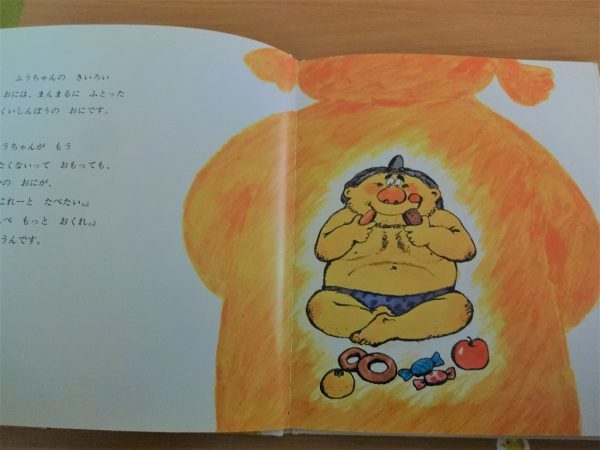 ふうちゃんの きいろい
おには、まんまるに ふとった
くいしんぼうの おにです。
うちゃんが もう
たくないって おもっても、
の おにが、
これーと たべたい』
べ もっと おくれ』
うんです。